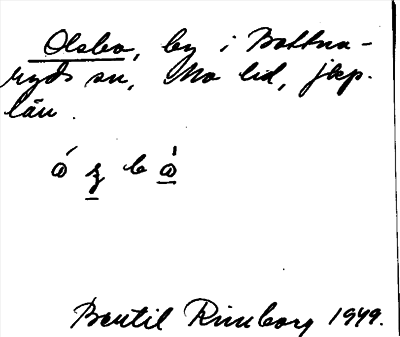 Olsbo, by i Bottna-
ryds sn, Mo hd, jkp.
län.
Bertil Rimborg 1949.